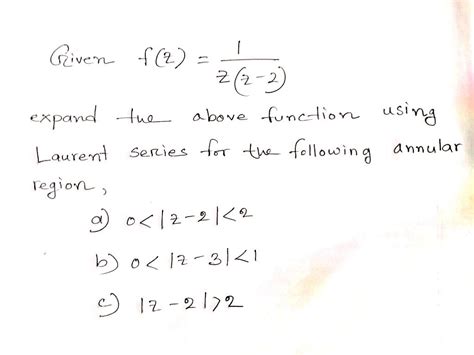 Given f(z) = 1 / z(z-2)
expand the above function using
Laurent series for the following annular
region,
a) 0<|z-2|<2
b) 0<|z-3|<1
c) |z-2|>2